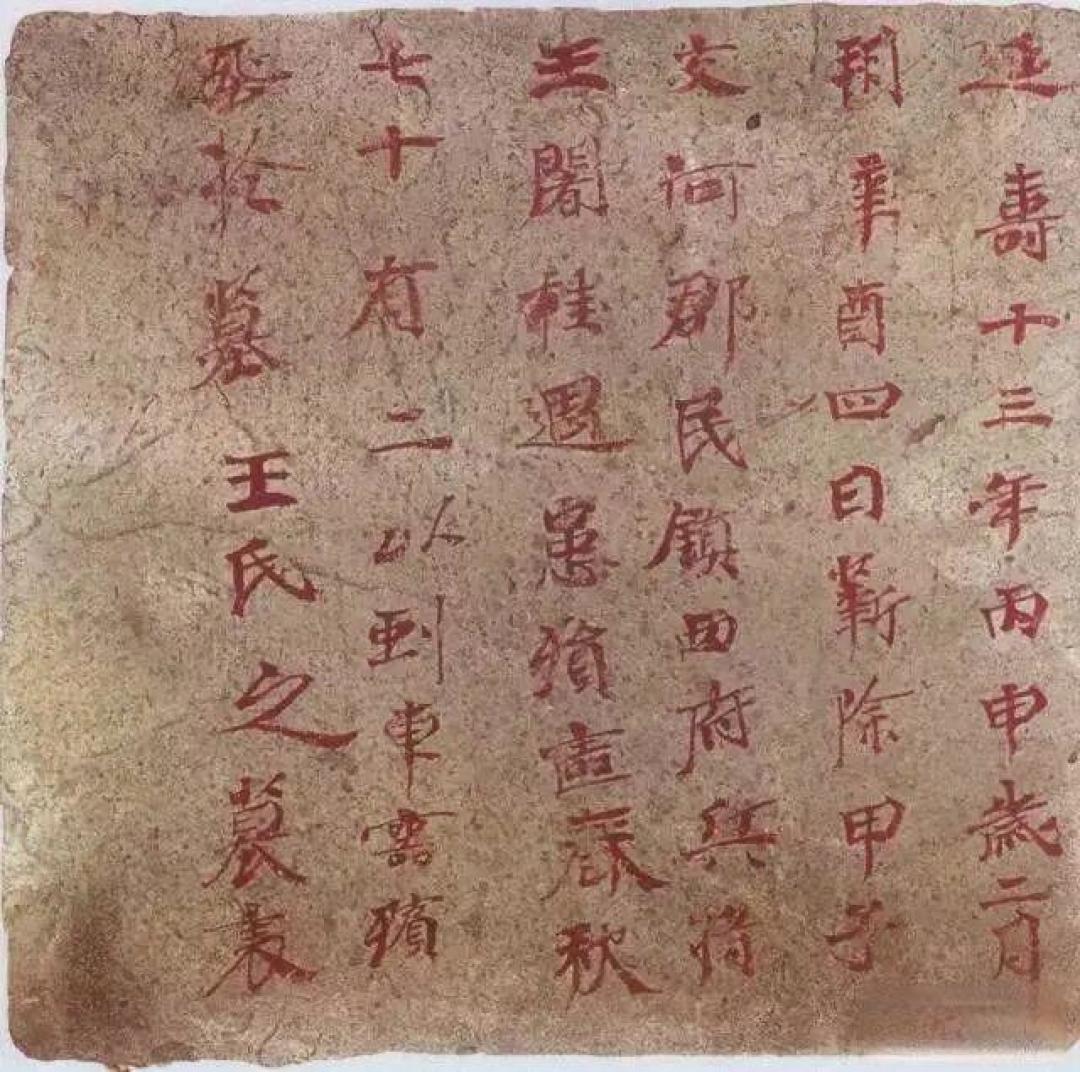 延壽十三年丙申歲二月
朔辛酉四日除甲子
交河郡民鎮西府兵將
王闍桂遇患殞春秋
七十有二以到車靈殯
於墓王氏之墓表